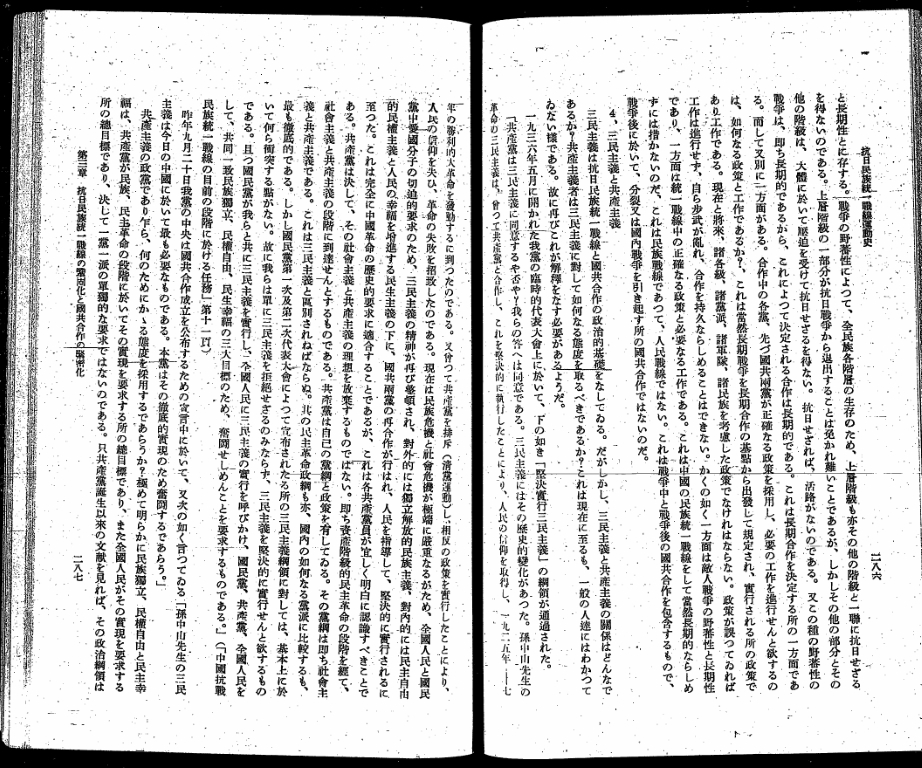 抗日民族統一戰線運動史
二八六
と長期性とに存する。戰爭の野蕃性によつて、全民族各階層の生存のため、上層階級も亦その他の階級と一聯に抗日せざる
を得ないのである。上層階級の一部分が抗日戰爭から退出することは免かれ難いことであるが、しかしその他の部分とその
他の階級は、大體に於いて壓迫を受けて抗日せざるを得ない。抗日せざれば、活路がないのである。又この種の野蕃性の
戰爭は、即ち長期的であるから、これによつて決定される合作は長期的である。これは長期合作を決定する所の一方面であ
る。而して又別に一方面がある。合作中の各黨、先づ國共兩黨が正確なる政策を採用し、必要の工作を進行せんと欲するの
は、如何なる政策と工作であるか?、これは當然長期戰爭を長期合作の基點から出發して規定され、實行される所の政策で
あり工作である。現在と將來、諸各級、諸黨派、諸軍隊、諸民族を考慮した政策でなければならない。政策が誤つてゐれば
工作は進行せず、自ら步武が亂れ、合作を持久ならしめることはできない。かくの如く一方面は敵人戰爭の野蕃性と長期性
であり、一方面は統一戰線中の正確なる政策と必要なる工作である。これは中國の民族統一戰線をして當然長期的たらしめ
ずには措かないのだ、これは民族戰線であつて、人民戰線ではない。これは戰爭中と戰爭後の國共合作を包含するもので、
戰爭後に於いて、分裂又は國內戰爭を引き起す所の國共合作ではないのだ。
4、三民主義と共產主義
三民主義は抗日民族統一戰線と國共合作の政治的基礎をなしてゐる。だがしかし、三民主義と共產主義の關係はどんなで
あるか?共產主義者は三民主義に對して如何なる態度を取るべきであるか?これは現在に至るも、一般の人達にはわかつて
ゐない樣である。故に再びこれが解釋をなす必要があるようだ。
一九三六年五月に開かれた我黨の臨時的代表大會上に於いて、下の如き「堅決實行三民主義」の綱領が通過された。
「共產黨は三民主義に同意するや否や?我らの答へは同意である。三民主義にはその歷史的變化があつた。孫中山先生の
革命の三民主義は、曾つて共產黨と合作し、これを堅決的に執行したことにより、人民の信仰を取得し、一九二五年—二七
年の勝利的大革命を發動するに到つたのである。又曾つて共產黨を排斥(淸黨運動)し、相反の政策を實行したことにより、
人民の信仰を失ひ、革命の失敗を招致したのである。現在は民族危機と社會危機が極端に嚴重なるがため、全國人民と國民
黨中愛國分子の切迫的要求のため、三民主義の精神が再び發顯され、對外的には獨立解放的民族主義、對內的には民主自由
的民權主義と人民の幸福を增進する民生主義の下に、國共兩黨の再合作が行はれ、人民を指導して、堅決的に實行されるに
至つた。これは完全に中國革命の歷史的要求に適合することであるが、これは各共產黨員が宜しく明白に認識すべきことで
ある。共產黨は決して、その社會主義と共產主義の理想を放棄するものではない。即ち資產階級的民主革命の段階を經て、
社會主義と共產主義的段階に到達せんとするものである。共產黨は自己の黨綱と政策を有してゐる。その黨綱は即ち社會主
義と共產主義である。これは三民主義と區別されねばならぬ。其の民主革命政綱も亦、國內の如何なる黨派に比較するも、
最も徹底的である。しかし國民黨第一次及第二次代表大會によつて宣布されたる所の三民主義綱領に對しては、基本上に於
いて何ら衝突する點がない。故に我らは單に三民主義を拒絕せざるのみならず、三民主義を堅決的に實行せんと欲するもの
である。且つ國民黨が我らと共に三民主義を實行し、全國人民に三民主義の實行を呼びかけ、國民黨、共產黨、全國人民を
して、共同一致民族獨立、民權自由、民生幸福の三大目標のため、奮鬪せしめんことを要求するものである。」(「中國抗戰
民族統一戰線の目前の段階に於ける任務」第十一頁)
昨年九月二十日我黨の中央は國共合作成立を公布するための宣言中に於いて、又次の如く言つてゐる「孫中山先生の三民
主義は今日の中國に於いて最も必要なものである。本黨はその徹底的實現のため奮鬪するであらう。」
共產主義の政黨であり乍ら、何のためにかゝる態度を採用するであらうか?極めて明らかに民族獨立、民權自由と民主幸
福は、共產黨が民族、民主革命の段階に於いてその實現を要求する所の總目標であり、また全國人民がその實現を要求する
所の總目標であり、決して一黨一派の單獨的な要求ではないのである。只共產黨誕生以來の文獻を見れば、その政治綱領は
第三章 抗日民族統一戰線の鞏固化と國共合作の緊密化
二八七